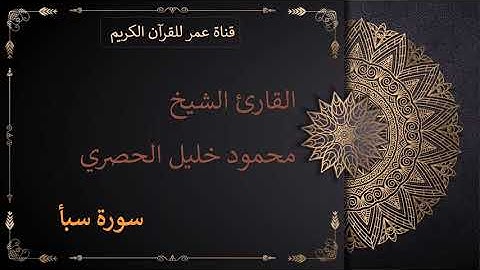 قناة عمر للقرآن الكريم
القارئ الشيخ
محمود خليل الحصري
سورة سبأ